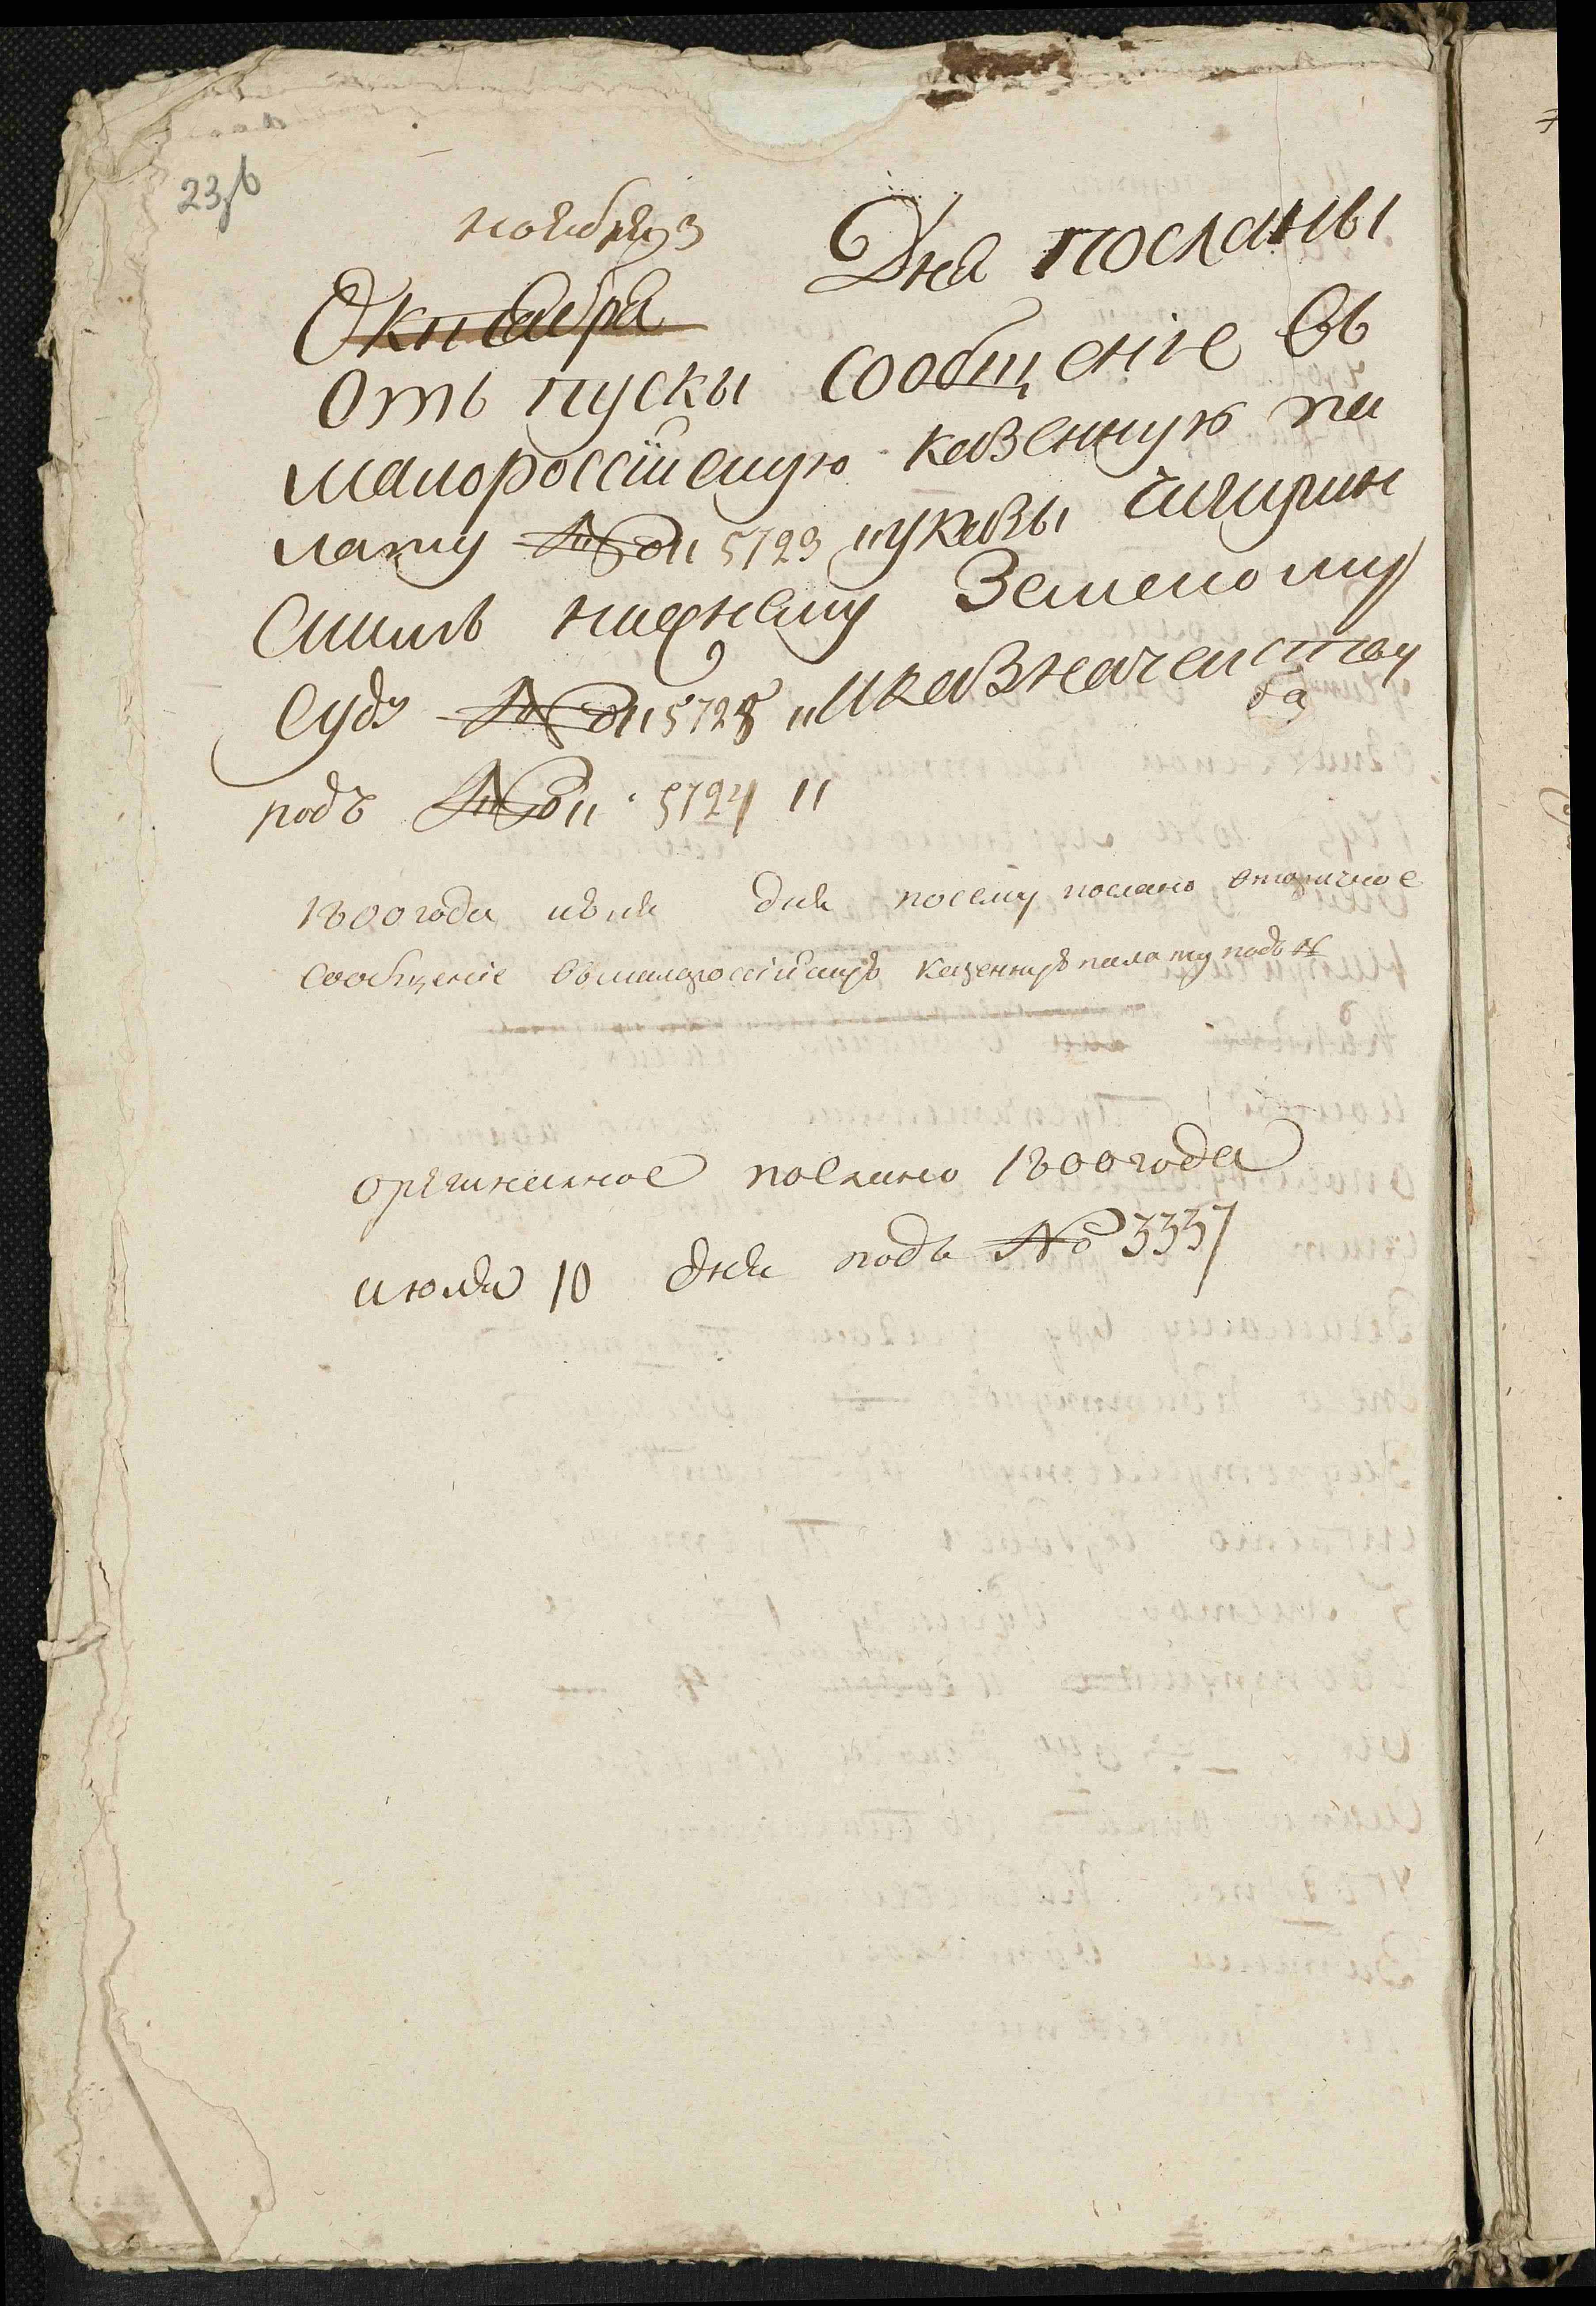 23 б
ноября 3
Октября Дня посланы
отъ пуски сообщение въ
малороссійскую казенную па
лату № 5723 указы чигирин
скимъ нижнему Земскому
Суду № 5725 и казначейству
подъ № 5724
1800 года июня дня посему послано вторичное
сообщеніе въ малороссійскую казенную палату подъ №
оригиналное послано 1800 года
июля 10 дня подъ № 3337